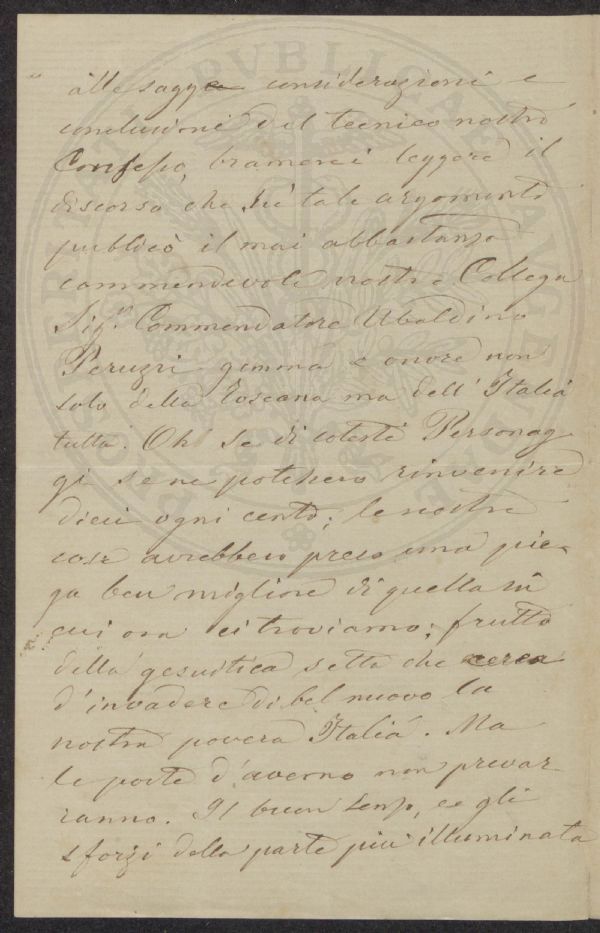 alle sagge considerazioni e
conclusioni del tecnico nostro
Consesso, bramerei leggere il
discorso che su tale argomento
publicò il mai abbastanza
commendevole nostro Collega
Sigr. Commendatore Ubaldino
Peruzzi gemma e onore non
solo della Toscana ma dell'Italia
tutta. Oh! se di cotesti Personag
gi se ne potessero rinvenire
dieci ogni cento; le nostre
cose avrebbero preso una pie-
ga ben migliore di quella in
cui ora ci troviamo; frutto
della gesuitica setta che cerca
d'invadere di bel nuovo la
nostra povera Italia. Ma
le porte d'averno non prevar
ranno. Il buon senso, e gli
sforzi della parte più illuminata
PUBLICA